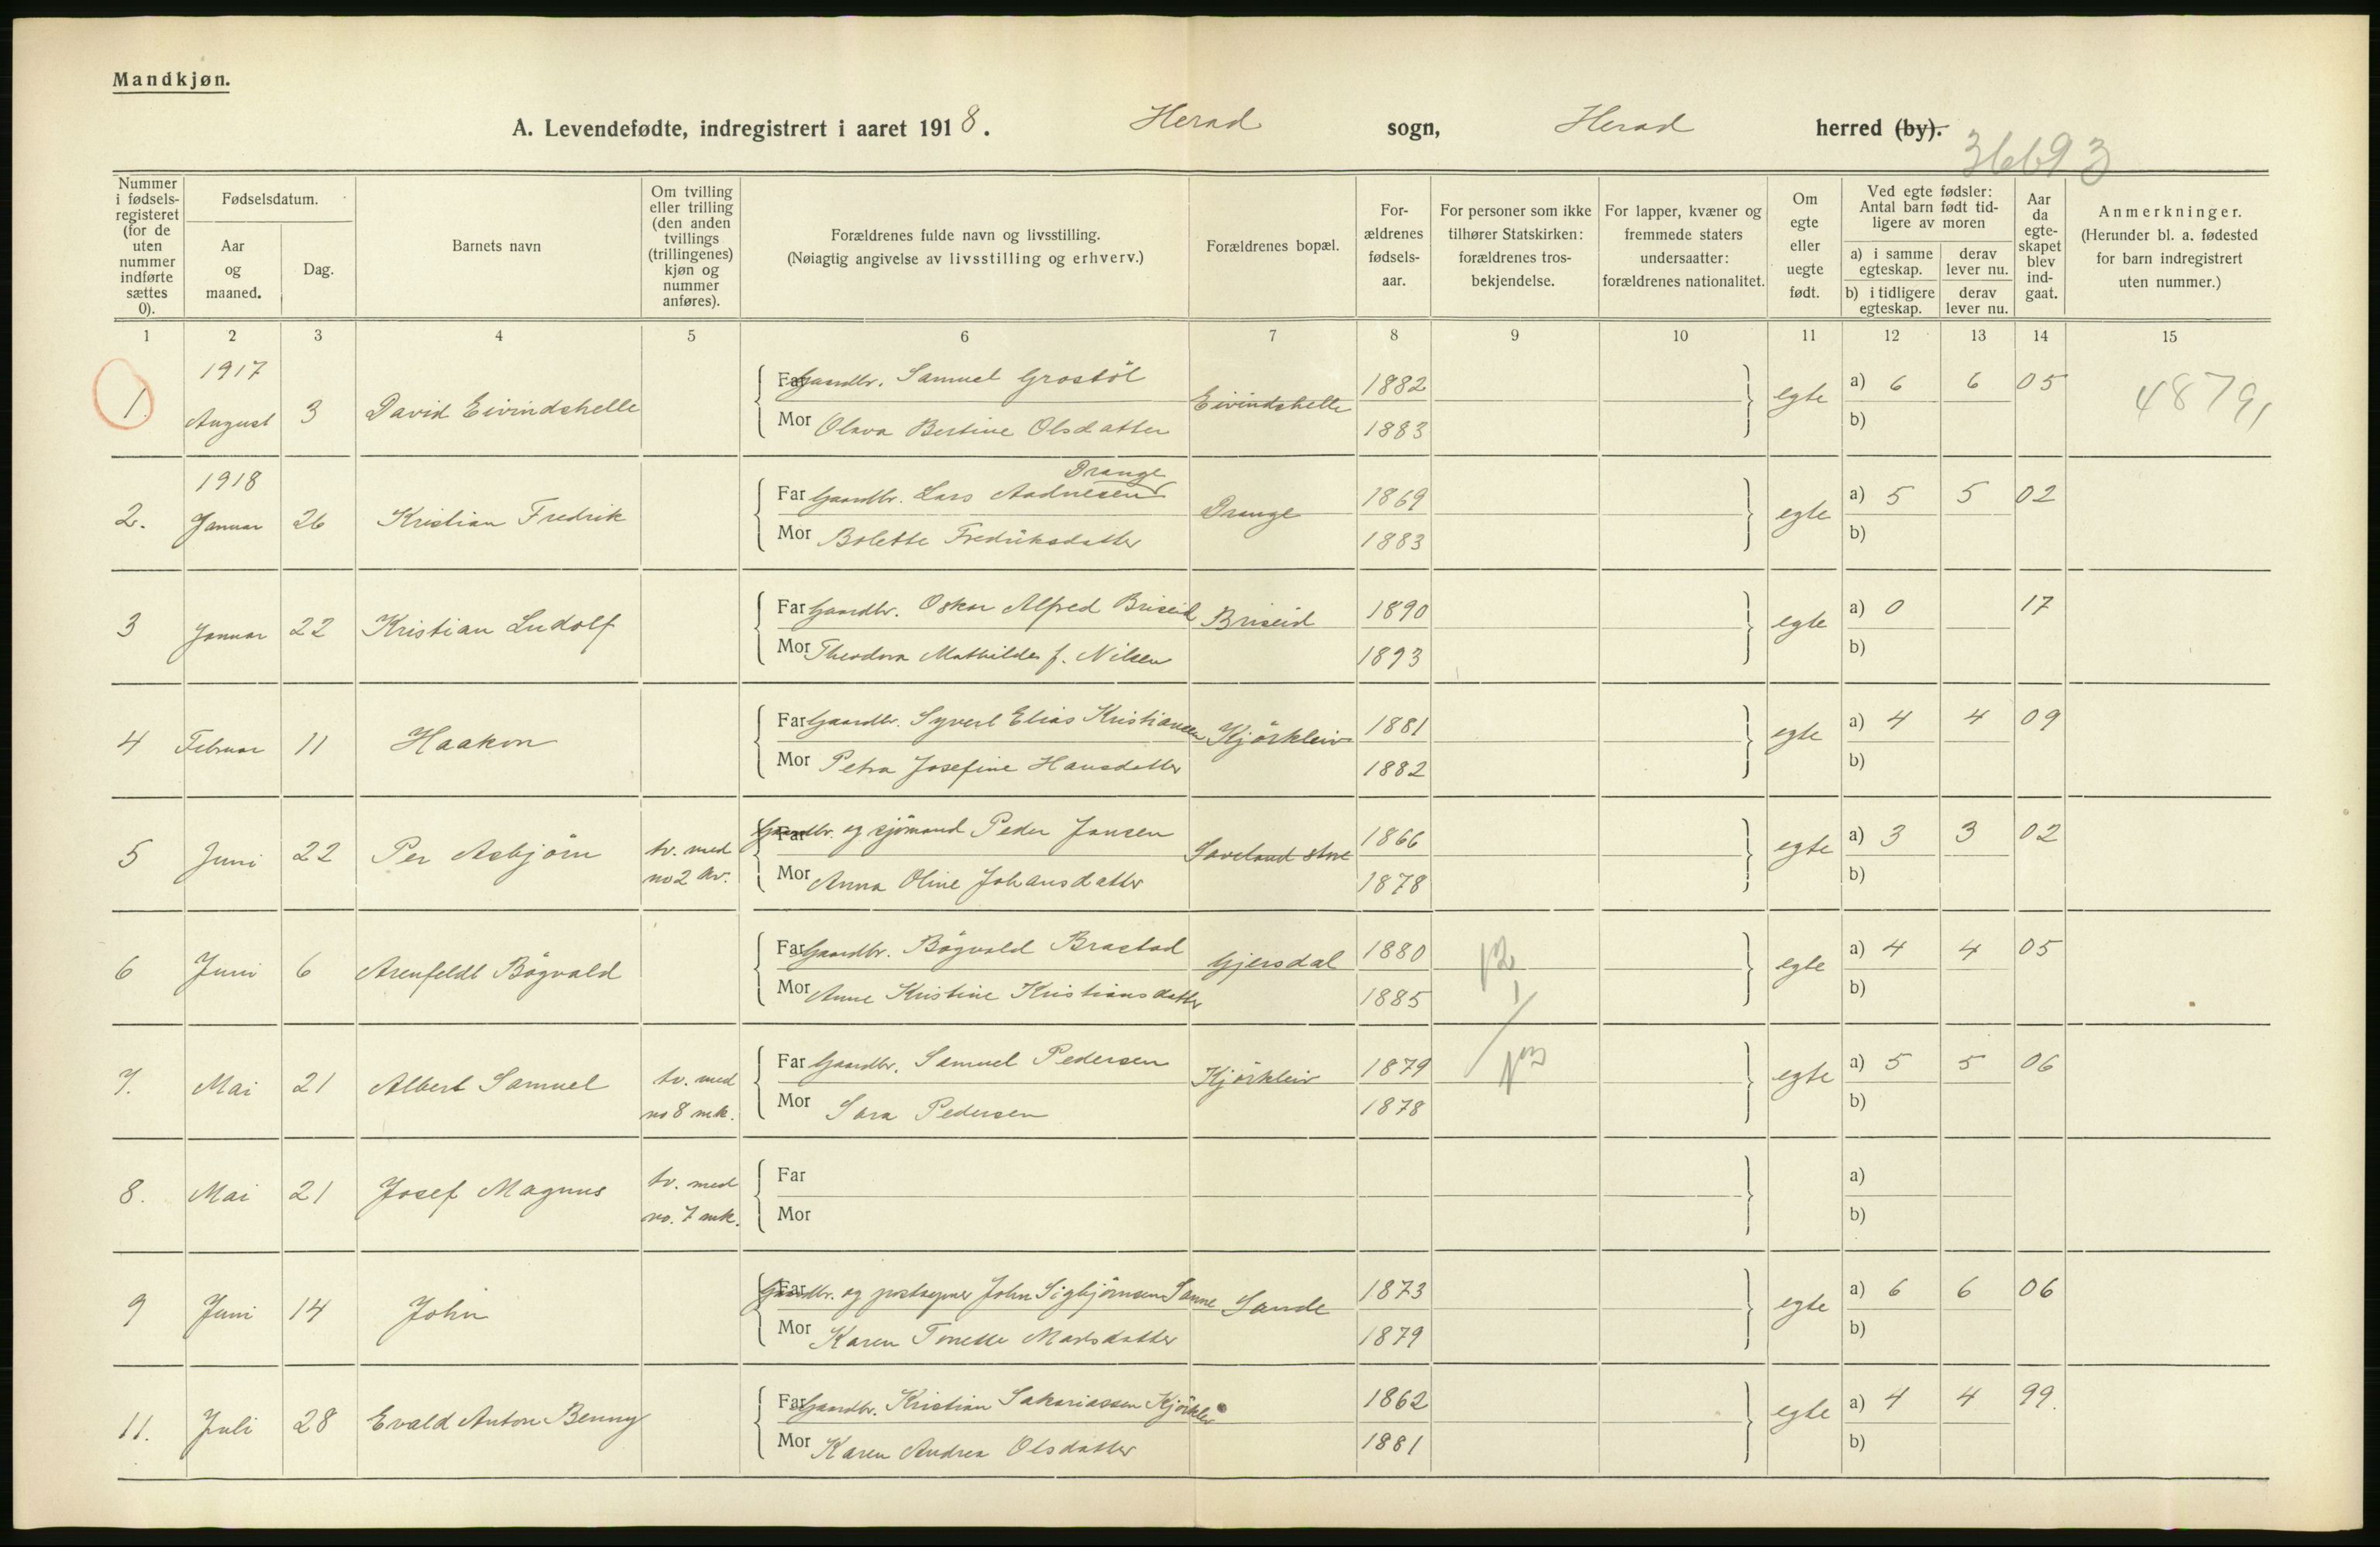 Mandkjøn.
A. Levendefødte, indregistrert i aaret 1918. Herad sogn, Herad herred (by).
36693
Nummer i fødsels-registeret (for de uten nummer indførte sættes 0).
Fødselsdatum.
Aar og maaned.
Dag.
Barnets navn
Om tvilling eller trilling (den anden tvillings (trillingenes) kjøn og nummer anføres).
Forældrenes fulde navn og livsstilling.
(Nøiagtig angivelse av livsstilling og erhverv.)
Forældrenes bopæl.
For-ældrenes fødsels-aar.
For personer som ikke tilhører Statskirken: forældrenes tros-bekjendelse.
For lapper, kvæner og fremmede staters undersaatter: forældrenes nationalitet.
Om egte eller uegte født.
Ved egte fødsler: Antal barn født tid-ligere av moren
a) i samme egteskap. derav lever nu.
b) i tidligere egteskap. derav lever nu.
Aar da egte-skapet blev ind-gaat.
Anmerkninger.
(Herunder bl. a. fødested for barn indregistrert uten nummer.)
1 2 3 4 5 6 7 8 9 10 11 12 13 14 15
1917
1. August 3 David Eivindshelle Far Gaardbr. Samuel Grostöl Eivindshelle 1882 egte a) 6 6 05 4879,
Mor Olava Bertine Olsdatter 1883 b)
1918
Drange
2. Januar 26 Kristian Fredrik Far Gaardbr. Lars Aadnesen Drange 1869 egte a) 5 5 02
Mor Bolette Fredriksdatter 1883 b)
3 Januar 22 Kristian Ludolf Far Gaardbr. Oskar Alfred Briseid Briseid 1890 egte a) 0 17
Mor Theodora Mathilde f. Nilsen 1893 b)
4 Februar 11 Haakon Far Gaardbr. Syvert Elias Kristiansen Kjörkleiv 1881 egte a) 4 4 09
Mor Petra Josefine Hansdatter 1882 b)
5 Juni 22 Per Asbjörn tv. med no 2 kv. Far Gaardbr. og sjömand Peder Jansen Saveland store 1866 egte a) 3 3 02
Mor Anna Oline Johansdatter 1878 b)
6 Juni 6 Arenfeldt Bögvald Far Gaardbr. Bögvald Brastad Gjersdal 1880 egte a) 4 4 05
Mor Anne Kristine Kristiansdatter 1885 b)
7. Mai 21 Albert Samuel tv. med no 8 mk. Far Gaardbr. Samuel Pedersen Kjörkleiv 1879 egte a) 5 5 06
Mor Sara Pedersen 1878 b)
8. Mai 21 Josef Magnus tv. med no. 7 mk. Far a)
Mor b)
9 Juni 14 John Far Gaardbr. og John Sigbjörnsen Sande 1873 egte a) 6 6 06
Mor Karen Tonette Marksdatter 1879 b)
11. Juli 28 Evald Anton Benny Far Gaardbr. Kristian Sakariassen Kjörkleiv 1862 egte a) 4 4 99.
Mor Karen Andrea Olsdatter 1881 b)